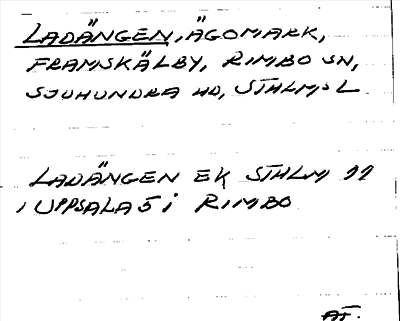 LADÄNGEN, ÄGOMARK,
FRAMSKÄLBY, RIMBO SN,
SJUHUNDRA HD, STHLMS L
LADÄNGEN EK STHLM 99
I UPPSALA 5 i RIMBO
AF.